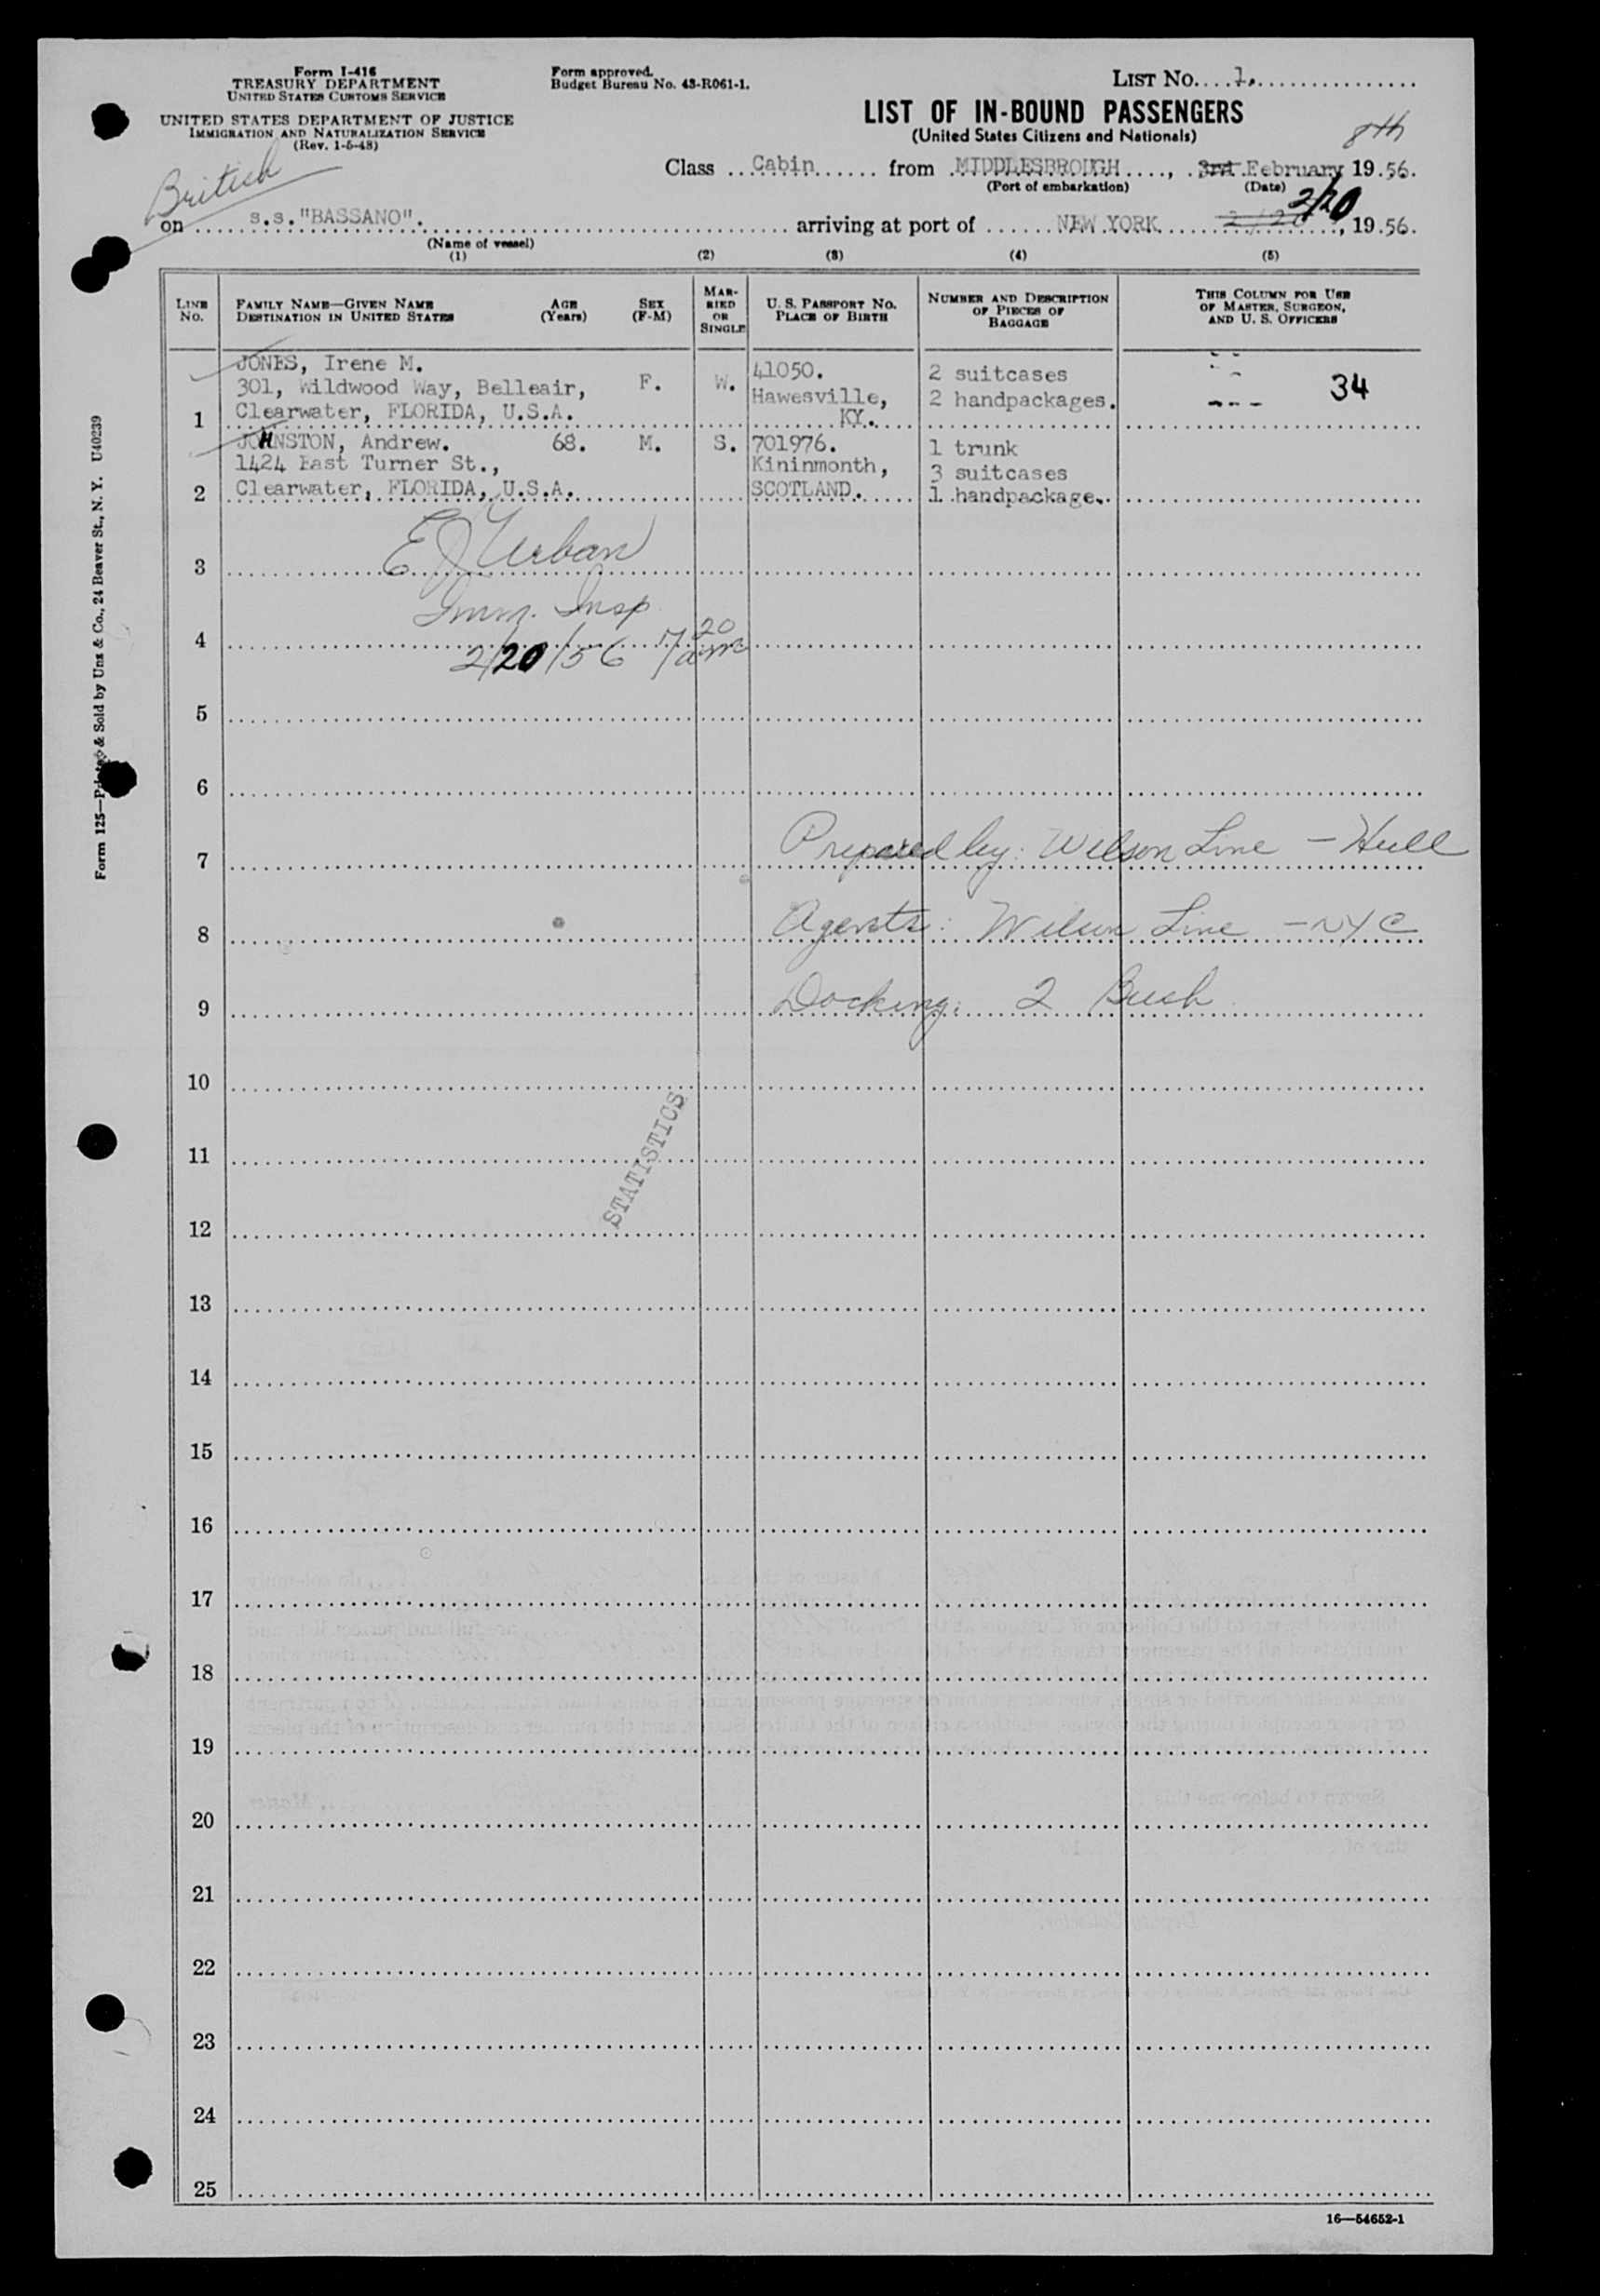 Form I-416
TREASURY DEPARTMENT
UNITED STATES CUSTOMS SERVICE
UNITED STATES DEPARTMENT OF JUSTICE
IMMIGRATION AND NATURALIZATION SERVICE
(Rev. 1-5-48)
Form approved.
Budget Bureau No. 43-R061-1.
LIST No. 1.
LIST OF IN-BOUND PASSENGERS
(United States Citizens and Nationals)
8th
Class Cabin from MIDDLESBROUGH, 3rd February 19 56.
(Port of embarkation) (Date)
British
2/20
on s.s."BASSANO". arriving at port of NEW YORK 2/20, 19 56.
(Name of vessel)
(1) (2) (3) (4) (5)
LINE No. FAMILY NAME—GIVEN NAME DESTINATION IN UNITED STATES AGE (Years) SEX (F-M) MARRIED OR SINGLE U. S. PASSPORT NO. PLACE OF BIRTH NUMBER AND DESCRIPTION OF PIECES OF BAGGAGE THIS COLUMN FOR USE OF MASTER, SURGEON, AND U. S. OFFICERS
JONES, Irene M. 41050. 2 suitcases
301, Wildwood Way, Belleair, F. W. Hawesville, 2 handpackages. 34
1 Clearwater, FLORIDA, U.S.A. KY.
JOHNSTON, Andrew. 68. M. S. 701976. 1 trunk
1424 East Turner St., Kininmonth, 3 suitcases
2 Clearwater, FLORIDA, U.S.A. SCOTLAND. 1 handpackage.
3 E J Urban
Imm. Insp.
4 2/20/56 7 20 am
5
6
7 Prepared by: Wilson Line - Hull
8 Agents: Wilson Line - NYC
9 Docking: 2 Bush
10
11
STATISTICS
12
13
14
15
16
17
18
19
20
21
22
23
24
25
16—54652-1
Form 125—Printed & Sold by Unz & Co., 24 Beaver St., N. Y. U40239